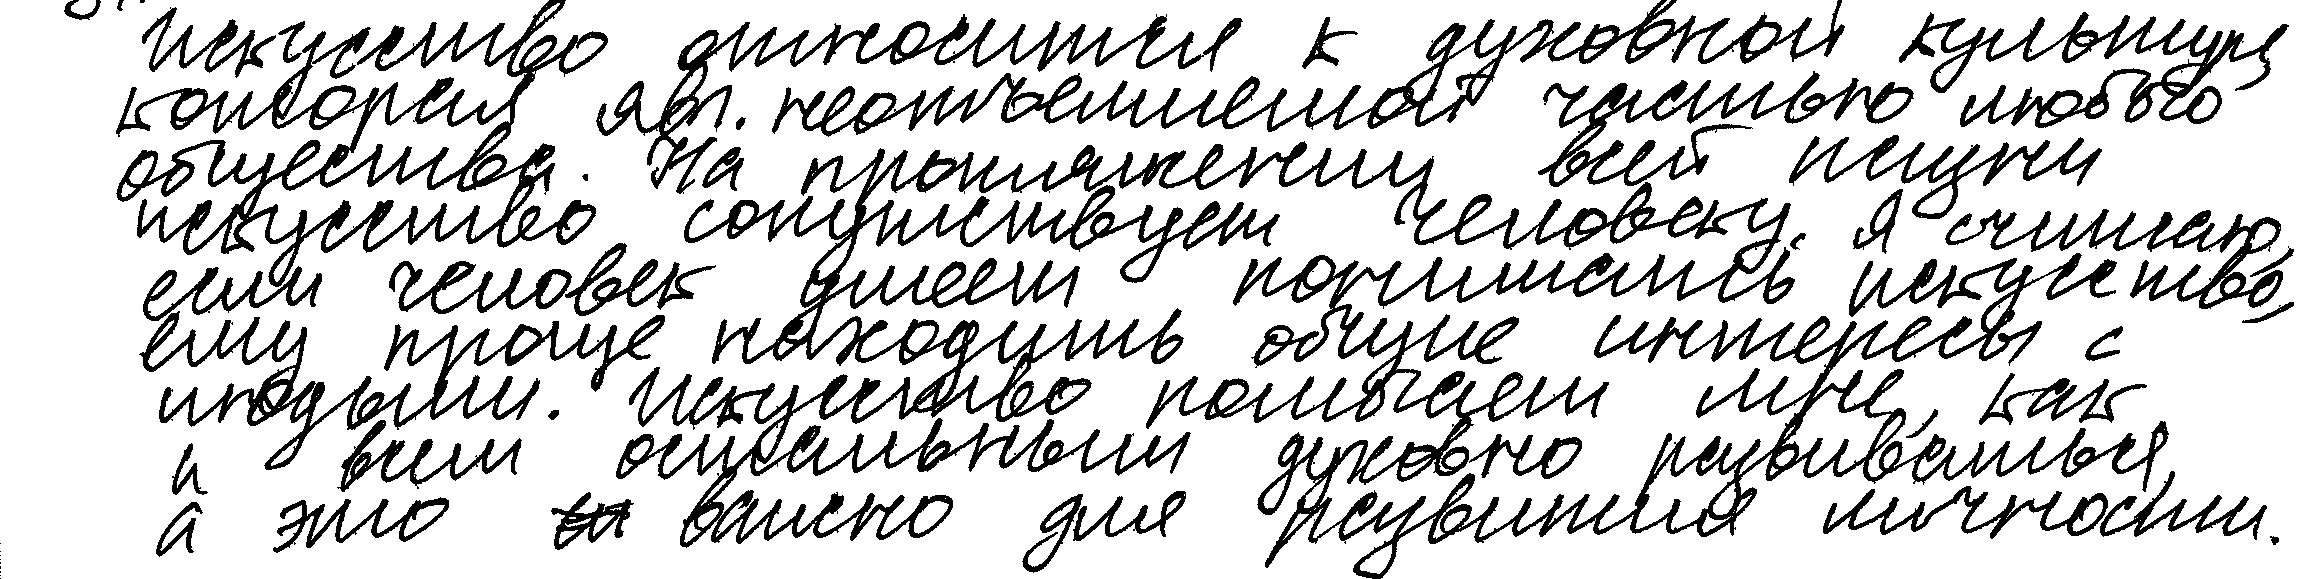 Искусство относится к духовной культуре,
которая явл. неотъемлемой частью любого
общества. На протяжении всей жизни
искусство сопутствует человеку. Я считаю,
если человек умеет понимать искусство,
ему проще находить общие интересы с
людьми. Искусство помогает мне, как
и всем остальным духовно развиваться,
а это важно для развития личности.